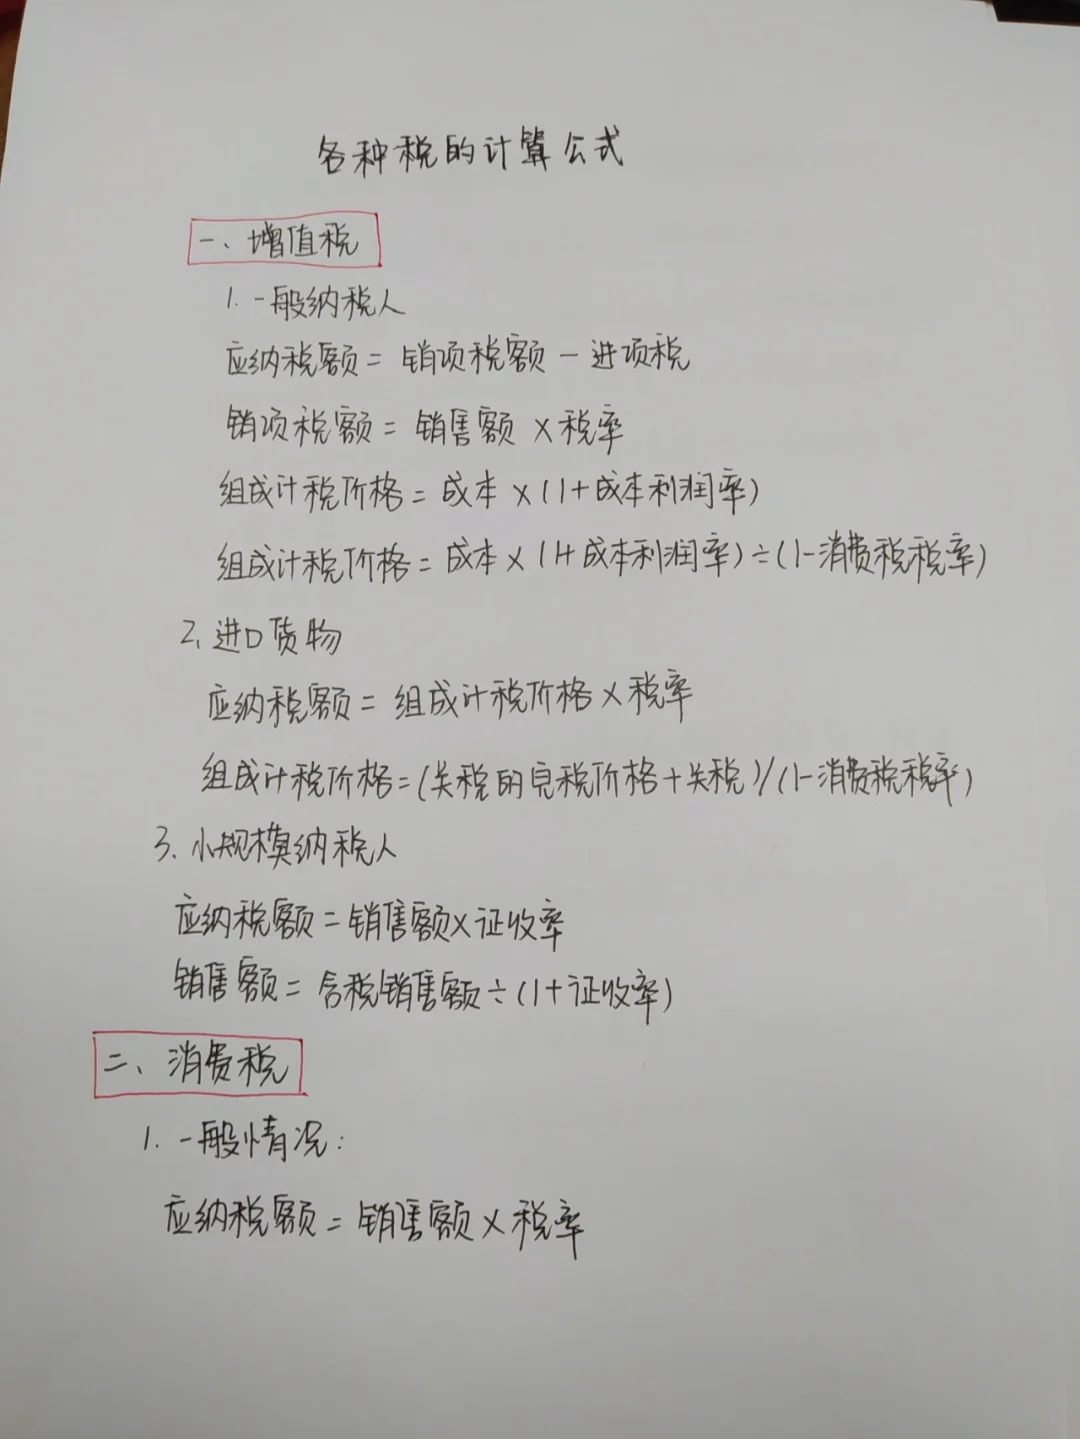 各种税的计算公式
一、增值税
1. 一般纳税人
应纳税额=销项税额-进项税
销项税额=销售额×税率
组成计税价格=成本×(1+成本利润率)
组成计税价格=成本×(1+成本利润率)÷(1-消费税税率)
2、进口货物
应纳税额=组成计税价格×税率
组成计税价格=(关税的完税价格+关税)/(1-消费税税率)
3. 小规模纳税人
应纳税额=销售额×证收率
销售额=含税销售额÷(1+证收率)
二、消费税
1. 一般情况:
应纳税额=销售额×税率